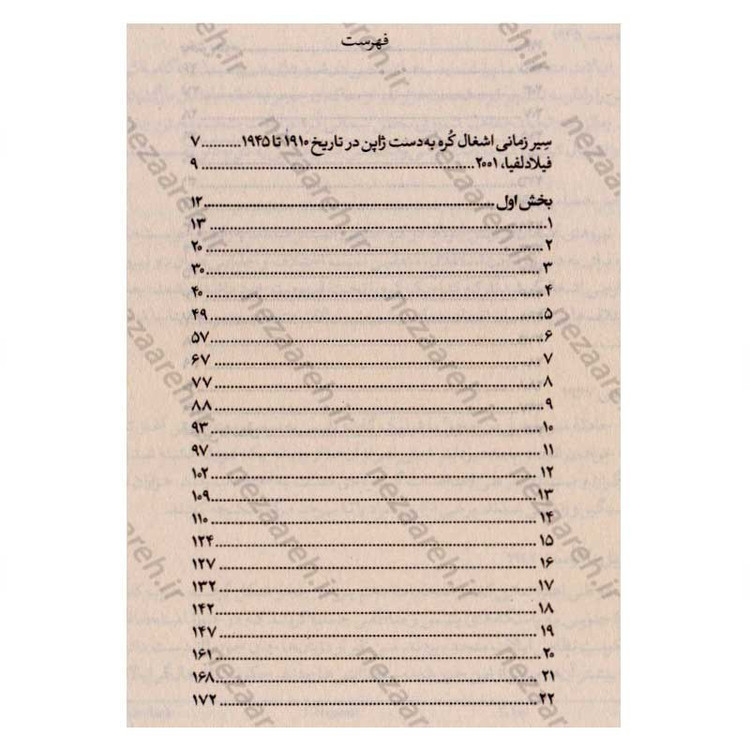 فهرست
سیر زمانی اشغال کُره به‌دست ژاپن در تاریخ ۱۹۱۰ تا ۱۹۴۵..........۷
فیلادلفیا، ۲۰۰۱..........۹
بخش اول..........۱۲
۱..........۱۳
۲..........۲۰
۳..........۳۰
۴..........۴۰
۵..........۴۹
۶..........۵۷
۷..........۶۷
۸..........۷۷
۹..........۸۸
۱۰..........۹۳
۱۱..........۹۷
۱۲..........۱۰۲
۱۳..........۱۰۹
۱۴..........۱۱۰
۱۵..........۱۲۴
۱۶..........۱۲۷
۱۷..........۱۳۲
۱۸..........۱۴۲
۱۹..........۱۴۷
۲۰..........۱۶۱
۲۱..........۱۶۸
۲۲..........۱۷۲
nezaareh.ir